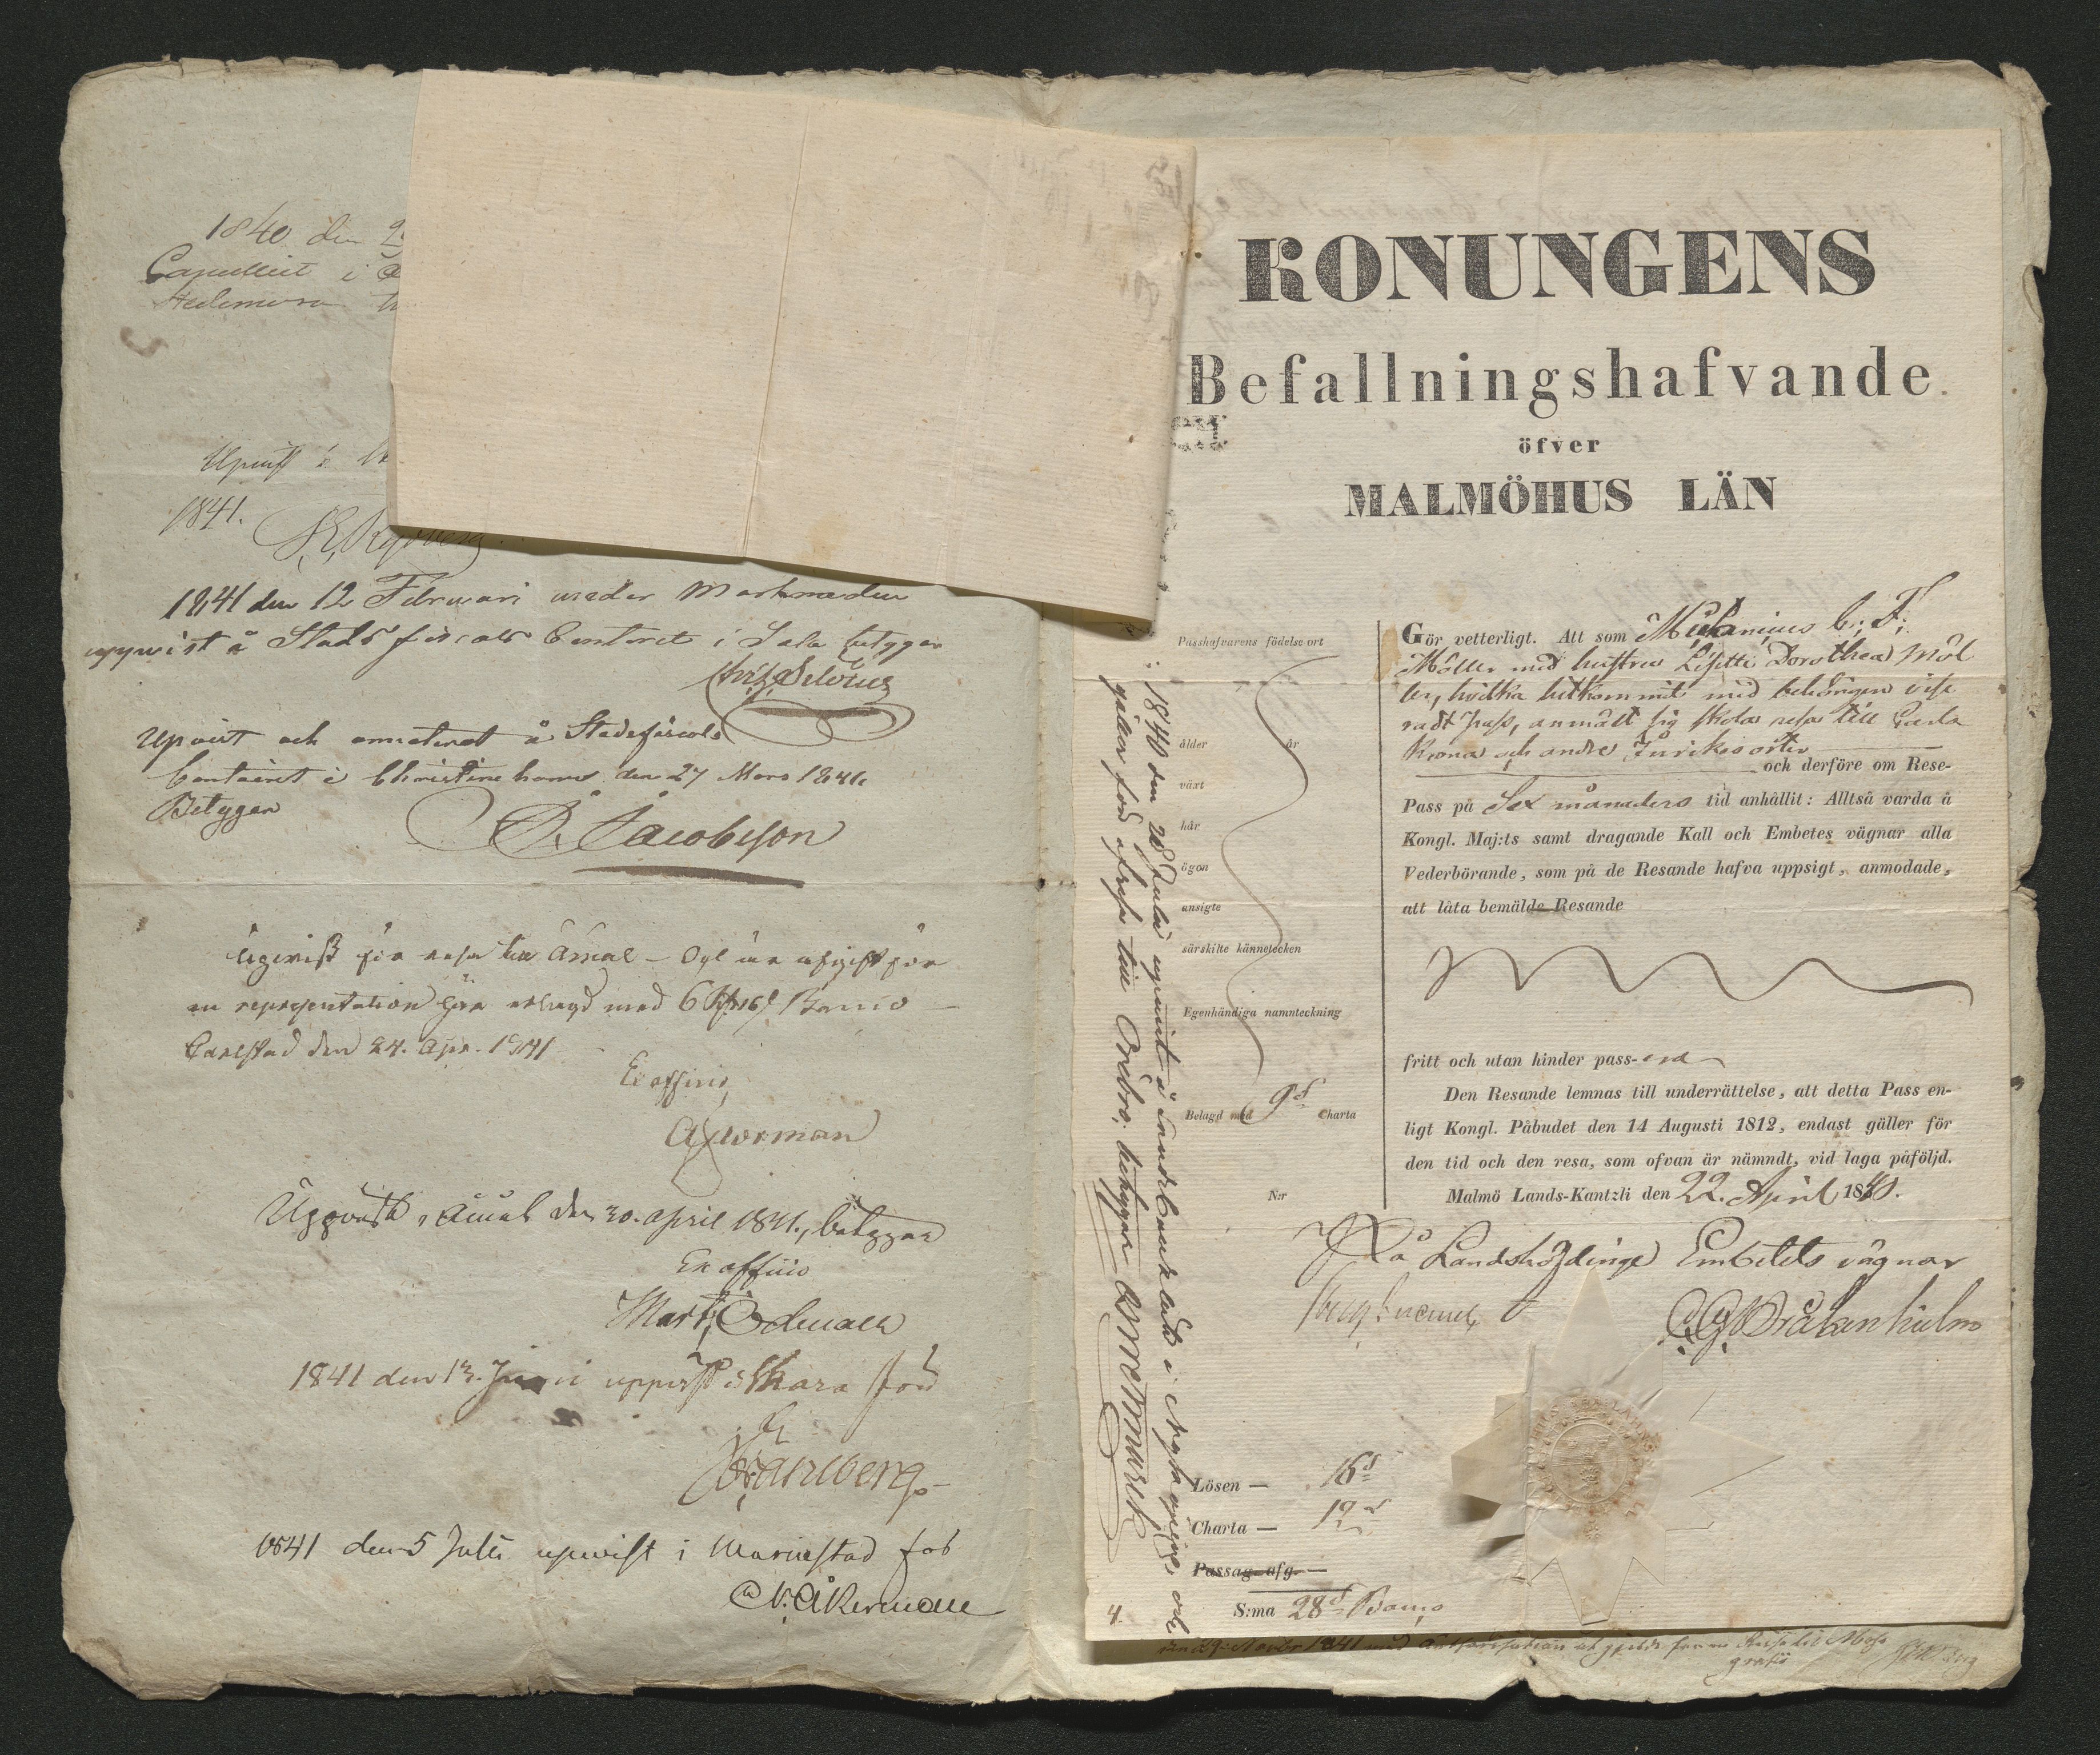 1840 den 2
Cancellit i
Hedemora
Upvist i
1841.
1841 den 12 Februari under Marknaden
uppvist å Stads fiscals Contoret i Sala betygar
Upvist och annoterat å Stadsfiscals
Contoiret i Christinehamn den 27 Mars 1841.
Betygar
Jacobsson
Upvist för resa till Åmål – Och är afgift för
en representation här erlagd med 6 Banco –
Carlstad den 24. Apr. 1841
Ex officio
Åkerman
Uppvist i Åmål den 30. april 1841, betygar
Ex officio
Mart. Ödman
1841 den 13. Juni uppvist i Skara för
1841 den 5 Juli upvist i Mariestad för
N. Åkerman
KONUNGENS
Befallningshafvande
öfver
MALMÖHUS LÄN
Passhafvarens födelse-ort
ålder år
växt
hår
ögon
ansigte
särskilte kännetecken
Egenhändiga namnteckning
Belagd med 9 s Charta
N:r
1840 den 28 Julii upvist i Landscancelliet i Nyköping och
gäller för afresa till Örebro, betygar
Gör vetterligt. Att som Mechanicus C: F:
Möller med hustru Lisette Dorothea Möl
ler, hvilka hitkommit med behörigen vise
radt Pass, anmält sig skola resa till Carls
krona och andre Inrikes orter
och derföre om Rese-
Pass på Sex månaders tid anhållit: Alltså varda å
Kongl. Maj:ts samt dragande Kall och Embetes vägnar alla
Vederbörande, som på de Resande hafva uppsigt, anmodade,
att låta bemälde Resande
fritt och utan hinder pass-era
Den Resande lemnas till underrättelse, att detta Pass en-
ligt Kongl. Påbudet den 14 Augusti 1812, endast gäller för
den tid och den resa, som ofvan är nämndt, vid laga påföljd.
Malmö Lands-Kantzli den 22. April 1840.
På Landshöfdinge Embetets vägnar
Lösen — 16 s
Charta — 12 s
Passag-afg. —
S:ma 28 s Banco
4.
1841 med
gratis